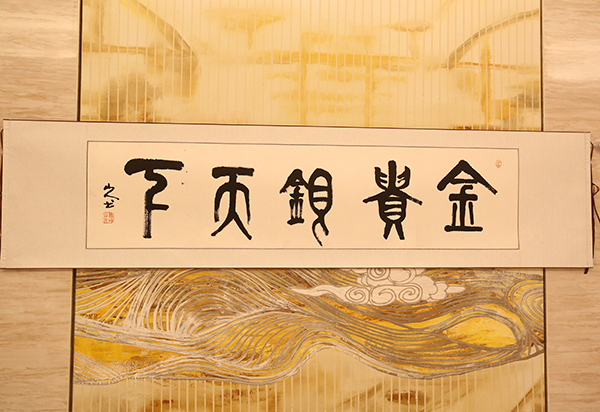 金貴銀天下